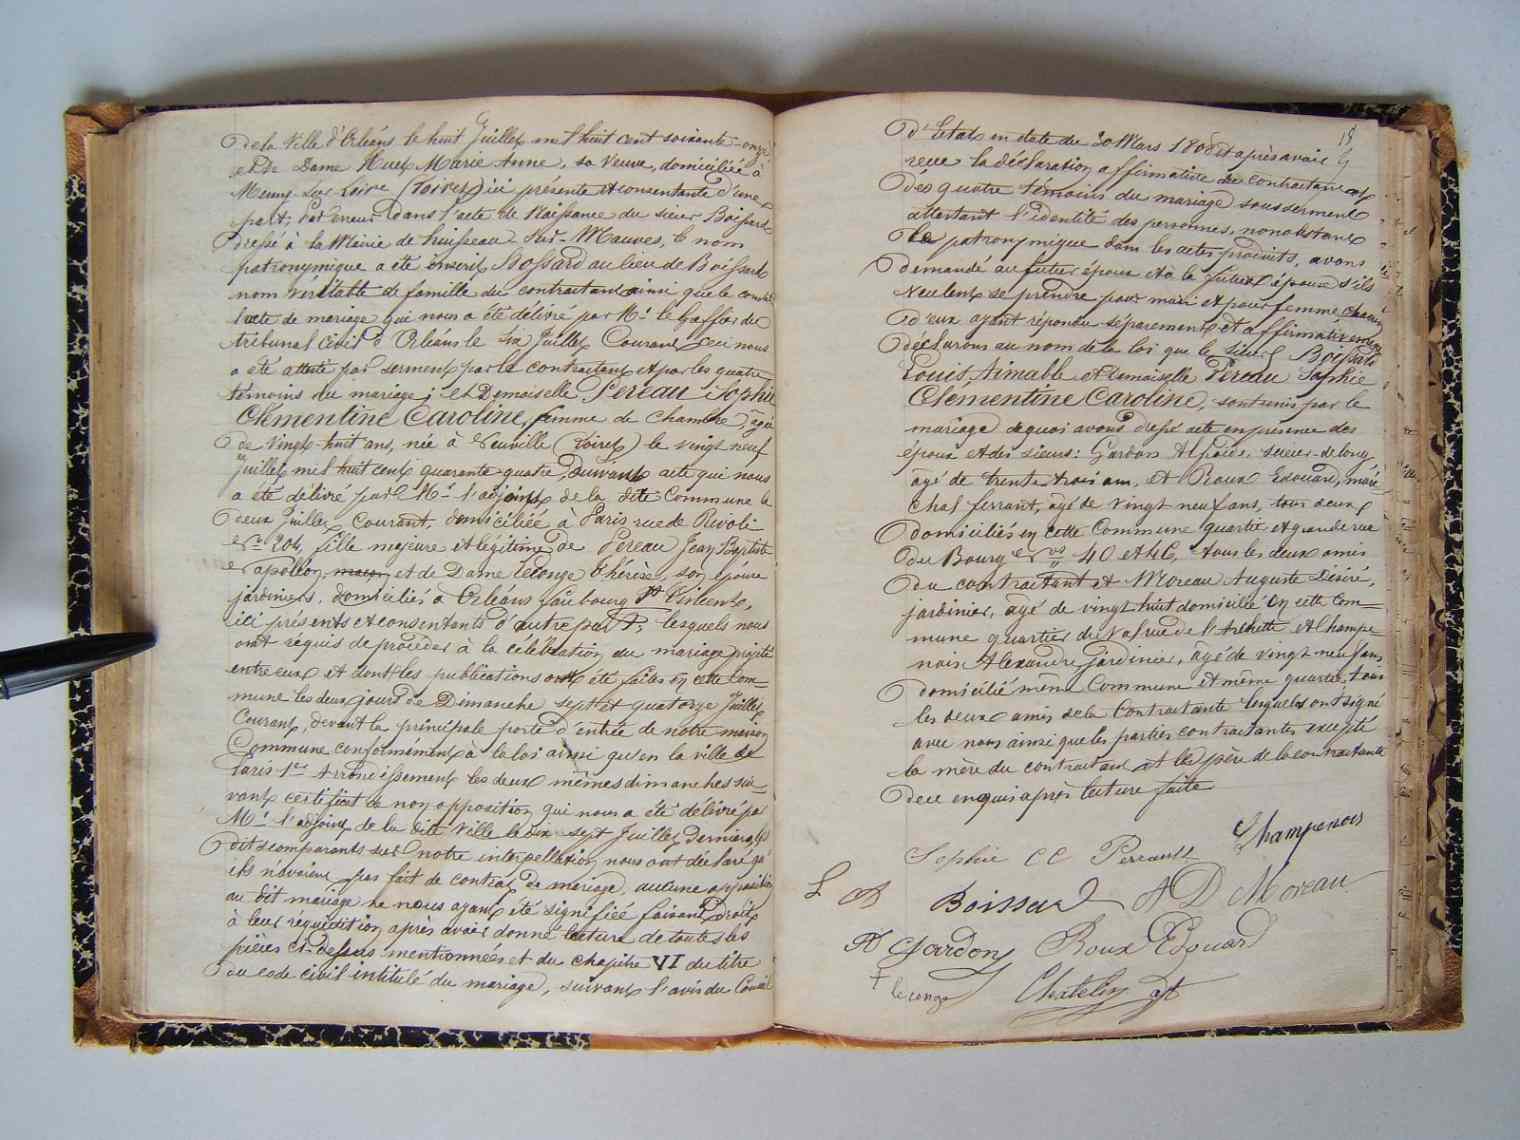 de la Ville d'Orléans le huit Juillet mil huit cent soixante-onze
et de Dame Huet Marie Anne, sa Veuve, domiciliée à
Meung sur Loire (Loiret) ici présente et consentante d'une
part; Par erreur dans l'acte de Naissance du sieur Boissard
dressé à la Mairie de Huisseau-Sur-Mauves, le nom
patronymique a été inscrit Bossard au lieu de Boissard
nom véritable de famille du contractant ainsi que le constate
l'acte de mariage qui nous a été délivré par Mr. le Greffier du
tribunal civil d'Orléans le six Juillet Courant, qui nous
a été attesté par serment par le contractant et par les quatre
témoins du mariage; et Demoiselle Péreau Sophie
Clémentine Caroline, femme de Chambre, âgée
de vingt-huit ans, née à Neuville (Loiret) le vingt neuf
Juillet mil huit cent quarante-quatre, suivant acte qui nous
a été délivré par Mr. l'adjoint de la dite Commune le
deux Juillet Courant, domiciliée à Paris rue de Rivoli
No. 204, fille majeure et légitime de Péreau Jean Baptiste
Napoléon, et de Dame Lelonge Thérèse, son épouse
jardiniers, domiciliés à Orléans faubourg St. Vincent,
ici présents et consentants d'autre part; lesquels nous
ont requis de procéder à la célébration du mariage projeté
entre eux et dont les publications ont été faites en cette Com-
mune les deux jours de Dimanche sept et quatorze Juillet
Courant, devant la principale porte d'entrée de notre maison
Commune conformément à la loi ainsi qu'en la ville de
Paris 1er Arrondissement les deux mêmes dimanches sui-
vant certificat de non opposition qui nous a été délivré par
Mr. l'adjoint de la dite Ville le dix-sept Juillet Dernier, les
dits comparants sur notre interpellation nous ont déclaré qu'
ils n'avaient pas fait de contrat de mariage, aucune opposition
au dit mariage ne nous ayant été signifiée faisant droit
à leur réquisition après avoir donné lecture de toutes les
pièces ci-dessus mentionnées et du chapitre VI du titre
du code civil intitulé du mariage, suivant l'avis du Conseil
d'Etat en date du 30 Mars 1808 et après avoir
reçu la déclaration affirmative du contractant et
des quatre témoins du mariage sous serment
attestant l'identité des personnes, nonobstant
le patronymique dans les actes produits, avons
demandé au futur époux et à la future épouse s'ils
veulent se prendre pour mari et pour femme chacun
d'eux ayant répondu séparément et affirmativement
déclarons au nom de la loi que le sieur Boissard
Louis Aimable et Demoiselle Péreau Sophie
Clémentine Caroline, sont unis par le
mariage de quoi avons dressé acte en présence des
époux et des sieurs: Gardon Alfoïde, scieur de long
âgé de trente trois ans, et Roux Edouard, maré-
chal ferrant, âgé de vingt neuf ans, tous deux
domiciliés en cette Commune quartier et grande rue
du Bourg Nos 40 et 46, tous les deux amis
du contractant et Moreau Auguste Désiré,
jardinier, âgé de vingt huit domicilié en cette Com-
mune quartier du Val rue de l'Archette et Champe-
nois Alexandre, jardinier, âgé de vingt neuf ans
domicilié même Commune et même quartier, tous
les deux amis de la Contractante lesquels ont signé
avec nous ainsi que les parties contractantes excepté
la mère du contractant et le père de la contractante
de ce enquis après lecture faite
Champenois
Sophie C C Perault
L A Boissard A D Moreau
A Gardon Roux Edouard
f lelonge Chatelin adjt